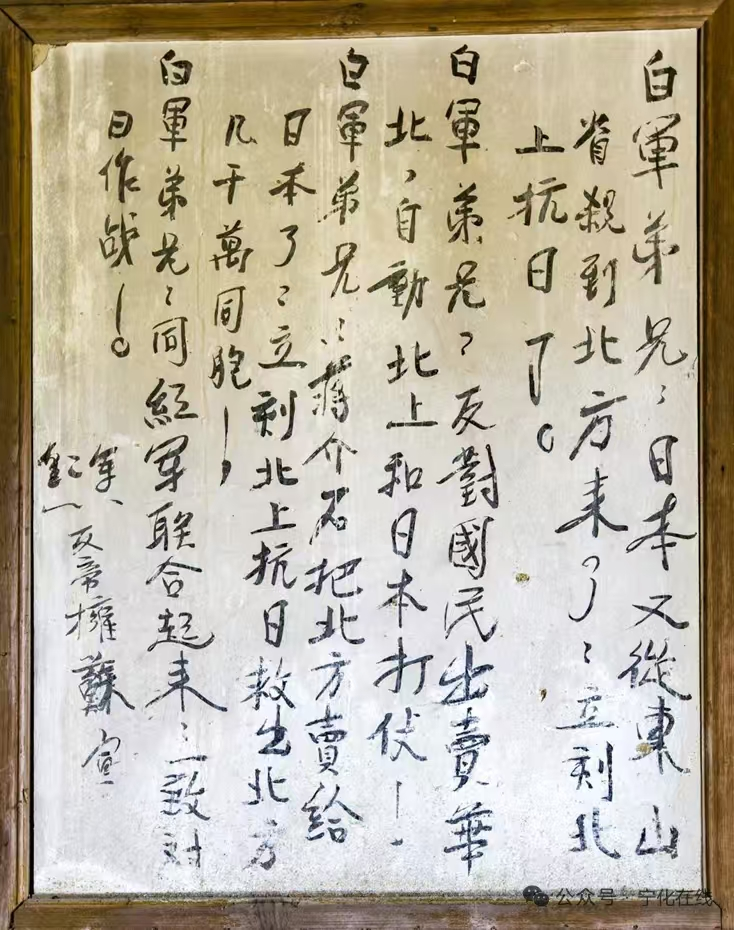 白軍弟兄:日本又從東山
省殺到北方来了:立刻北
上抗日!
白軍弟兄:反對國民出賣華
北,自動北上和日本打仗!
白軍弟兄:蔣介石把北方賣給
日本了:立刻北上抗日救出北方
几千萬同胞!
白軍弟兄:同紅軍联合起来:一致对
日作战!
反帝擁蘇宣
公众号·宁化在线